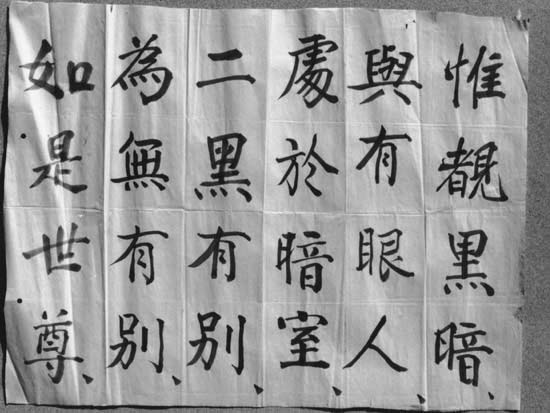 惟覩黑暗、
與有眼人、
處於暗室、
二黑有別、
為無有別、
如是世尊、